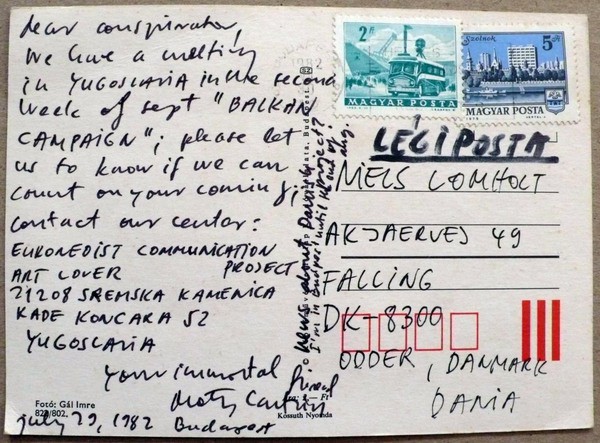 dear conspirator,
We have a meeting
in YUGOSLAVIA in the second
week of sept "BALKAN
CAMPAIGN"; please let
us to know if we can
count on your coming;
contact our center:
EUKONEDIST COMMUNICATION
ART LOVER PROJECT
21208 SREMSKA KAMENICA
KADE KONCARA 52
YUGOSLAVIA
Your immortal
july 29, 1982 Budapest
Fotó: Gál Imre
820/802.
news about
project?
I'm in Budapest until the end of aug.
Kossuth Nyomda
1982
2 Ft
MAGYAR POSTA
Szolnok
5 Ft
MAGYAR POSTA
LÉGIPOSTA
NIELS LOMHOLT
AKJAERVEJ 49
FALLING
DK-8300
ODDER, DANMARK
DANIA